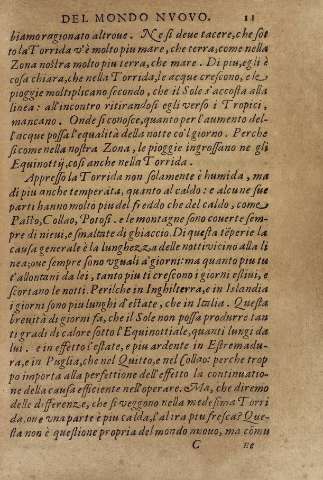 DEL MONDO NVOVO. 11
biamo ragionato altroue. Ne si deue tacere, che sot
to la Torrida v'è molto piu mare, che terra, come nella
Zona nostra molto piu terra, che mare. Di piu, egli è
cosa chiara, che nella Torrida, le acque crescono, e le
pioggie multiplicano secondo, che il Sole s'accosta alla
linea: all'incontro ritirandosi egli verso i Tropici,
mancano. Onde si conosce, quanto per l'aumento del-
l'acque possa l'equalità della notte co'l giorno. Perche
si come nella nostra Zona, le pioggie ingrossano ne gli
Equinottij, così anche nella Torrida.
Appresso la Torrida non solamente è humida, ma
di piu anche temperata, quanto al caldo: e alcune sue
parti hanno molto piu del freddo che del caldo, come
Pasto, Collao, Potosì. e le montagne sono couerte sem-
pre di nieui, e smaltate di ghiaccio. Di questa tẽperie la
causa generale è la lunghezza delle notti vicino alla li
nea; oue sempre sono vguali a' giorni: ma quanto piu tu
t'allontani da lei, tanto piu ti crescono i giorni estiui, e
scortano le notti. Perilche in Inghilterra, e in Islandia
i giorni sono piu lunghi d'estate, che in Italia. Questa
breuità di giorni fa, che il Sole non possa produrre tan
ti gradi di calore sotto l'Equinottiale, quanti lungi da
lui. e in effetto l'estate, e piu ardente in Estremadu-
ra, e in Puglia, che nel Quitto, e nel Collao: perche trop
po importa alla perfettione dell'effetto la continuatio-
ne della causa efficiente nell'operare. Ma, che diremo
delle differenze, che si veggono nella medesima Torri
da, oue vna parte è piu calda, l'altra piu fresca? Que-
sta non è questione propria del mondo nuouo, ma comu
C ne